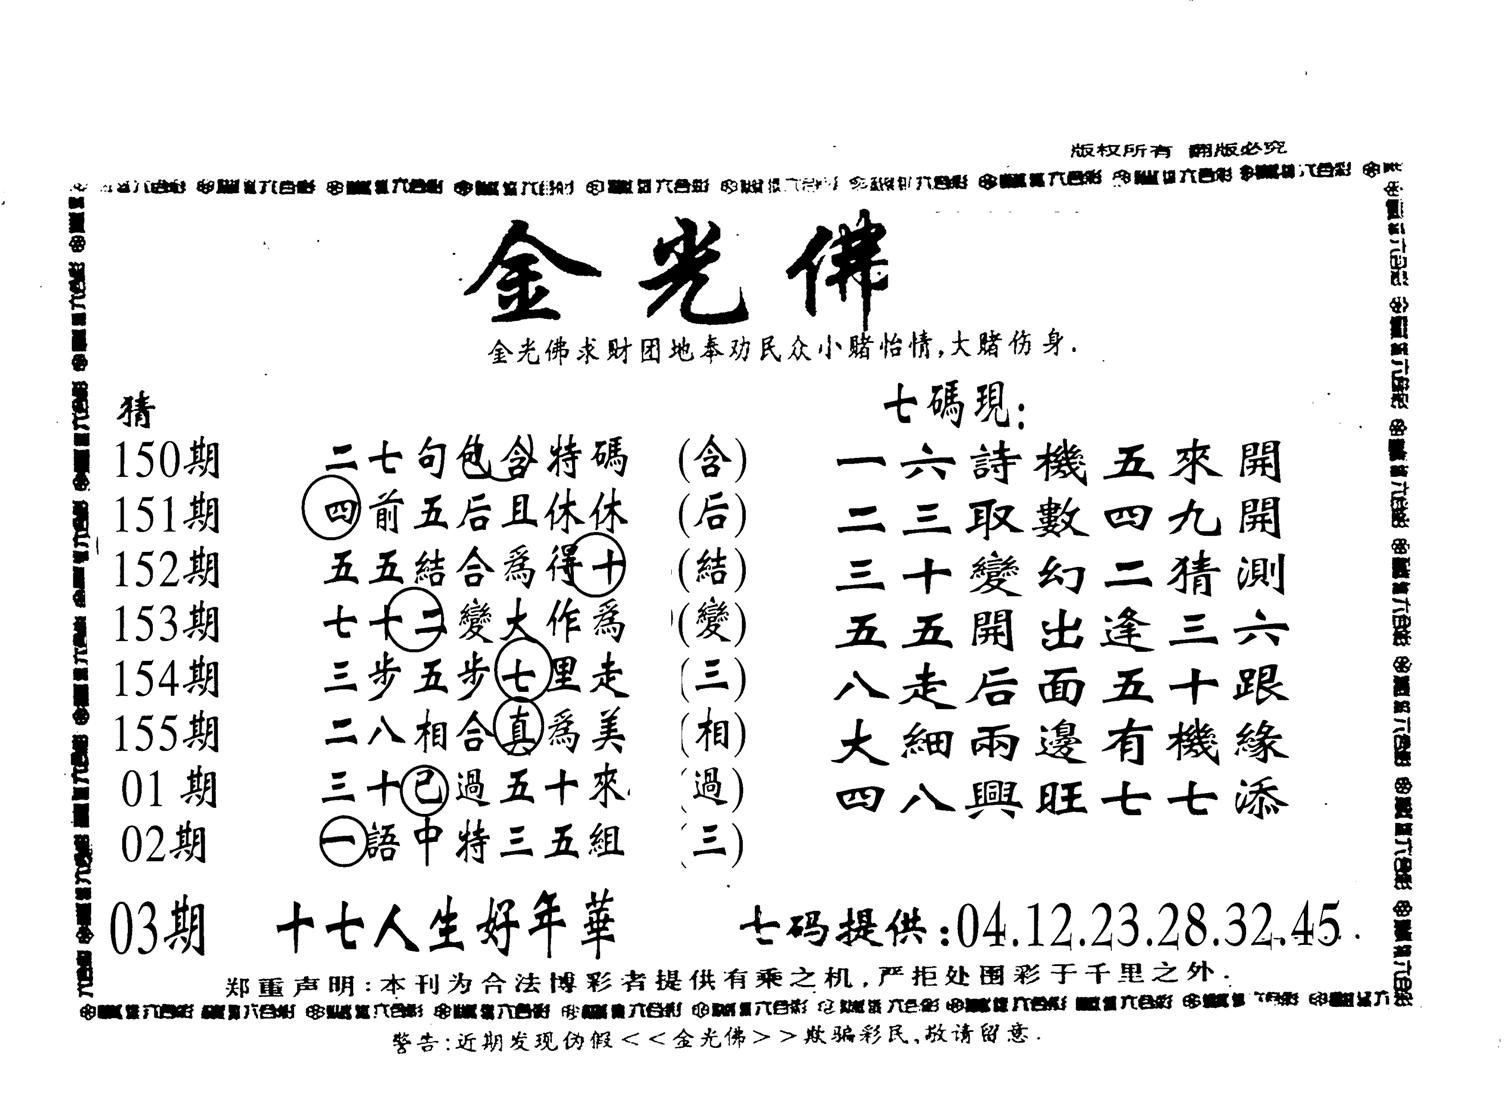 版权所有 翻版必究
金光佛
金光佛求财团地奉劝民众小赌怡情,大赌伤身.
猜
150期 二七句包含特碼 (含)
151期 四前五后且休休 (后)
152期 五五結合爲得十 (結)
153期 七十二變大作爲 (變)
154期 三步五步七里走 (三)
155期 二八相合真爲美 (相)
01期 三十已過五十來 (過)
02期 一語中特三五組 (三)
七碼現:
一六詩機五來開
二三取數四九開
三十變幻二猜測
五五開出逢三六
八走后面五十跟
大細兩邊有機緣
四八興旺七七添
03期 十七人生好年華
七码提供:04.12.23.28.32.45.
郑重声明:本刊为合法博彩者提供有乘之机,严拒处围彩于千里之外.
警告:近期发现伪假<<金光佛>>欺骗彩民,敬请留意.